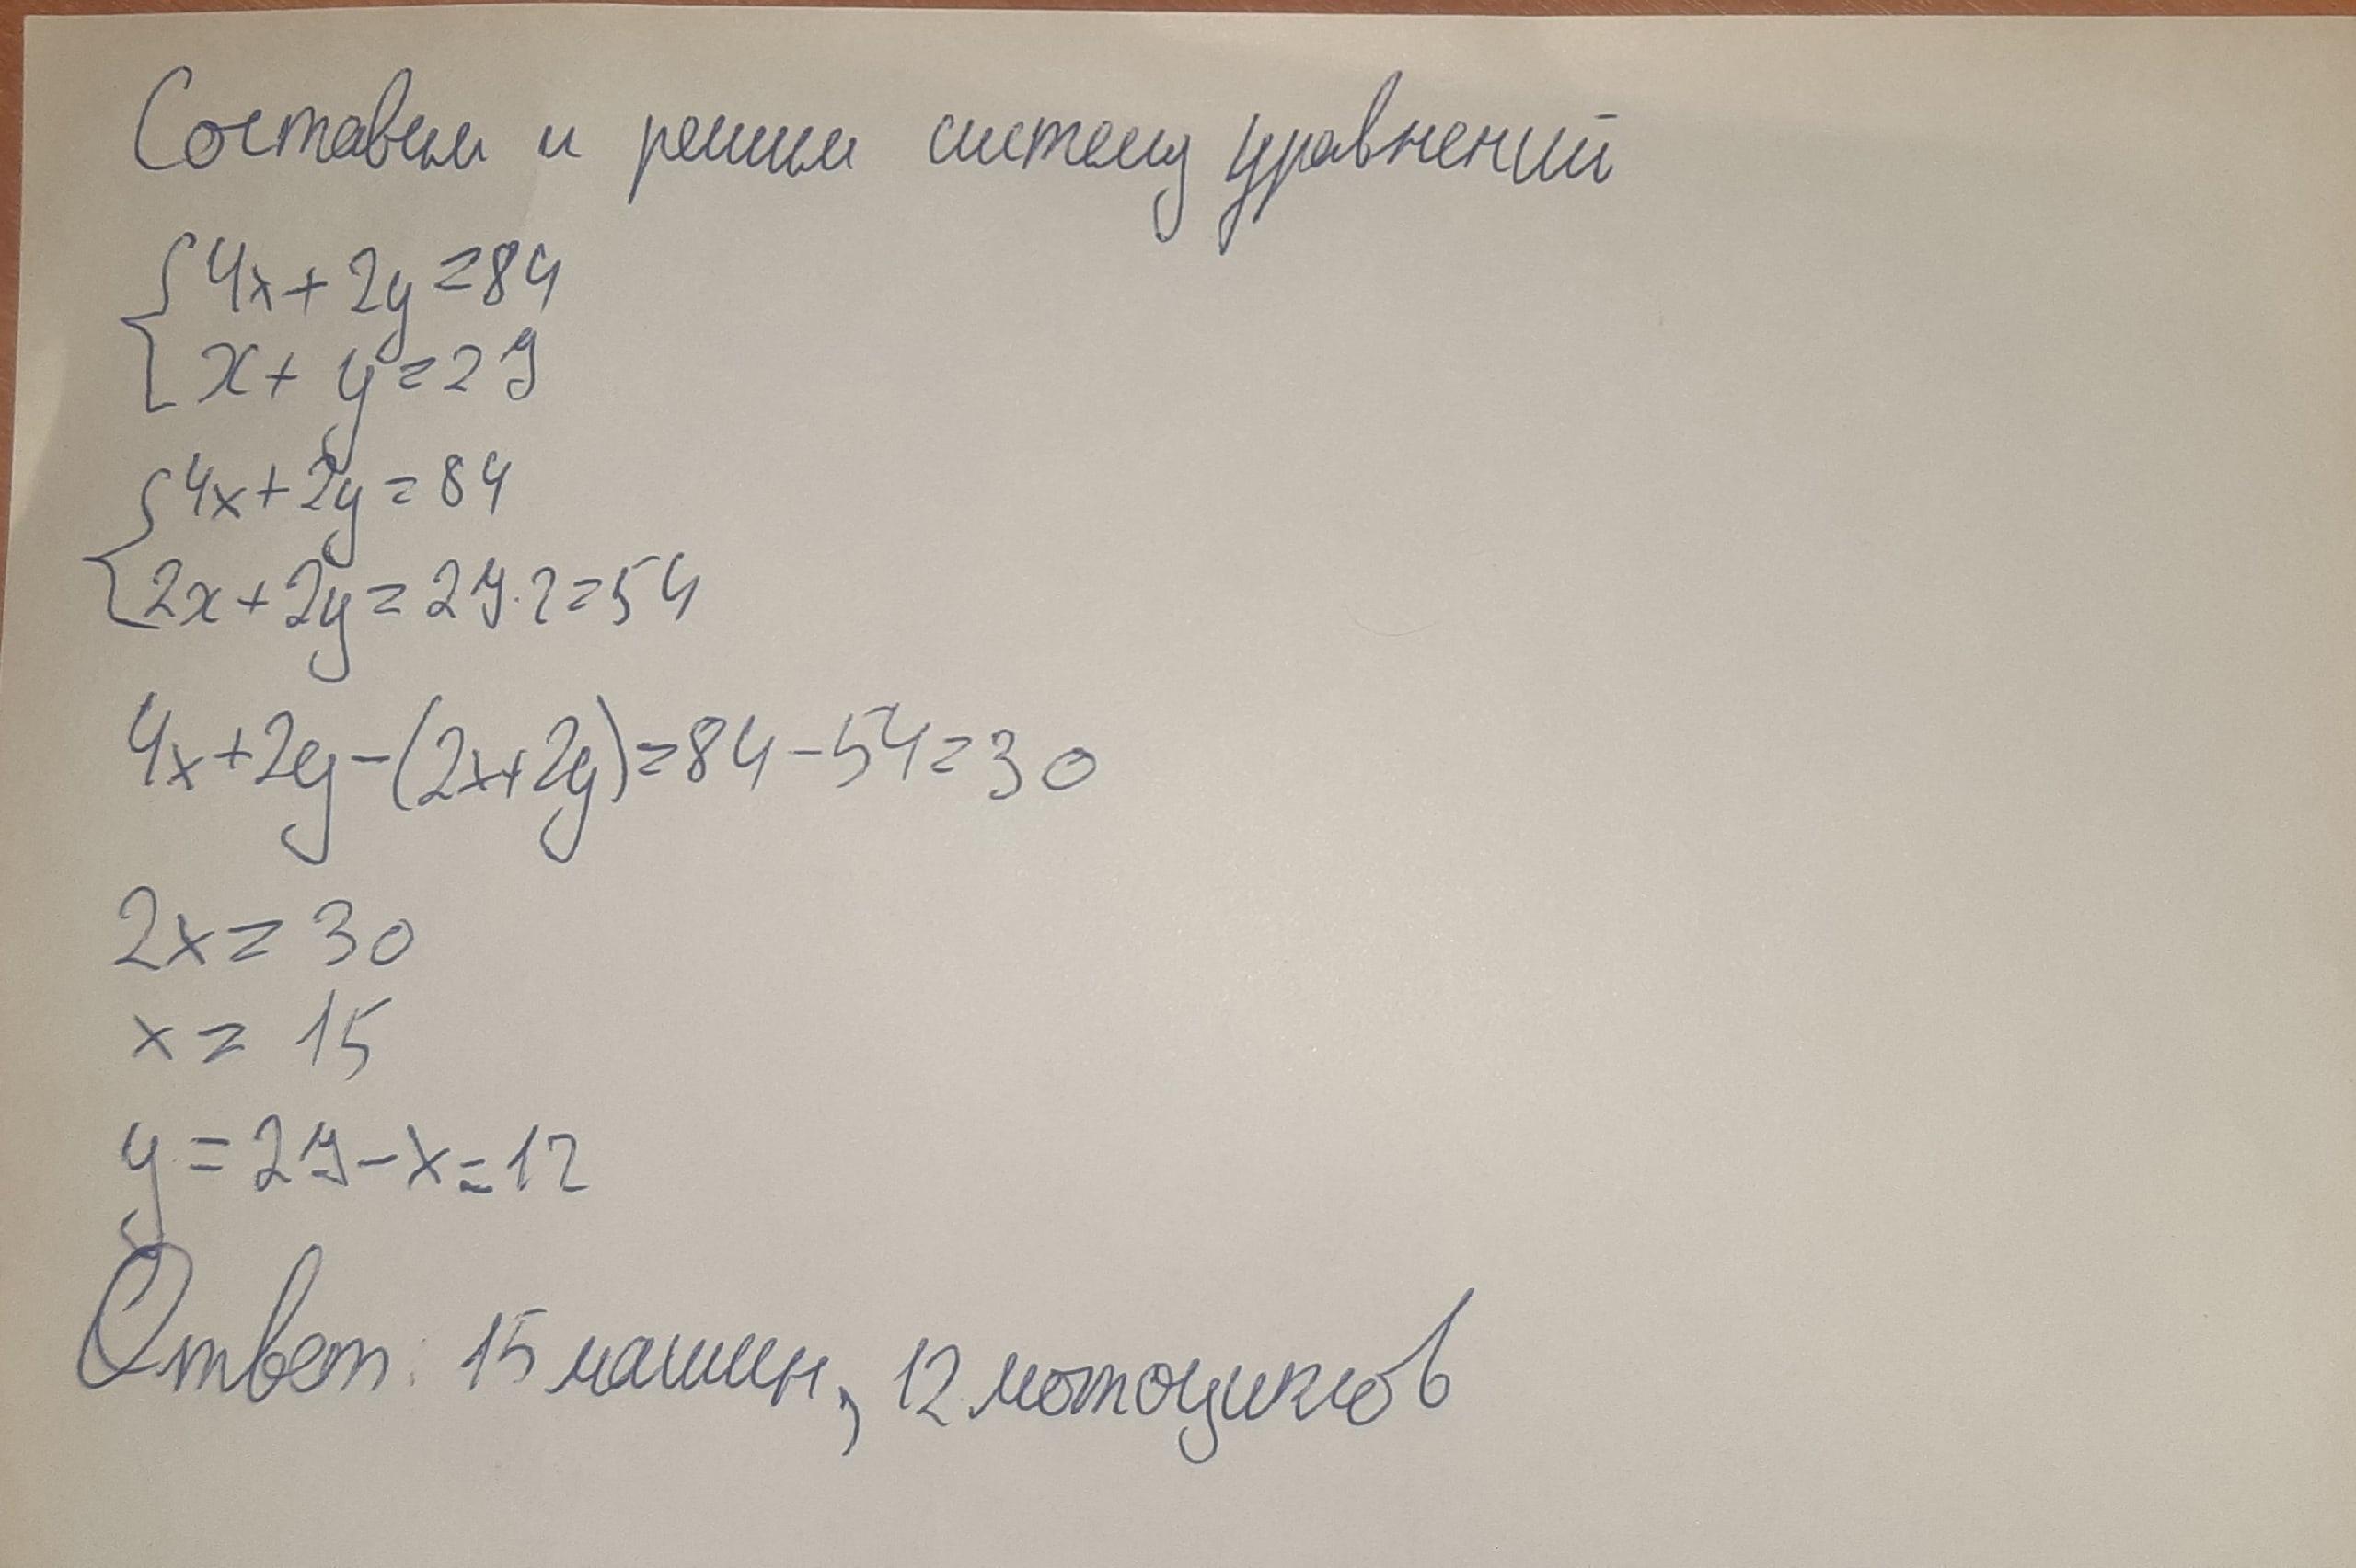 Составим и решим систему уравнений
{4x + 2y = 84
x + y = 27
{4x + 2y = 84
2x + 2y = 27·2 = 54
4x + 2y - (2x + 2y) = 84 - 54 = 30
2x = 30
x = 15
y = 27 - x = 12
Ответ: 15 машин, 12 мотоциклов